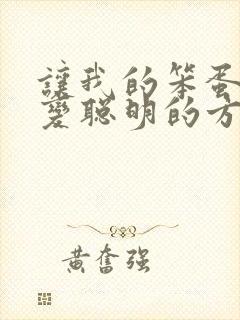 讓我的笨蛋
變聰明的方
黄奮强